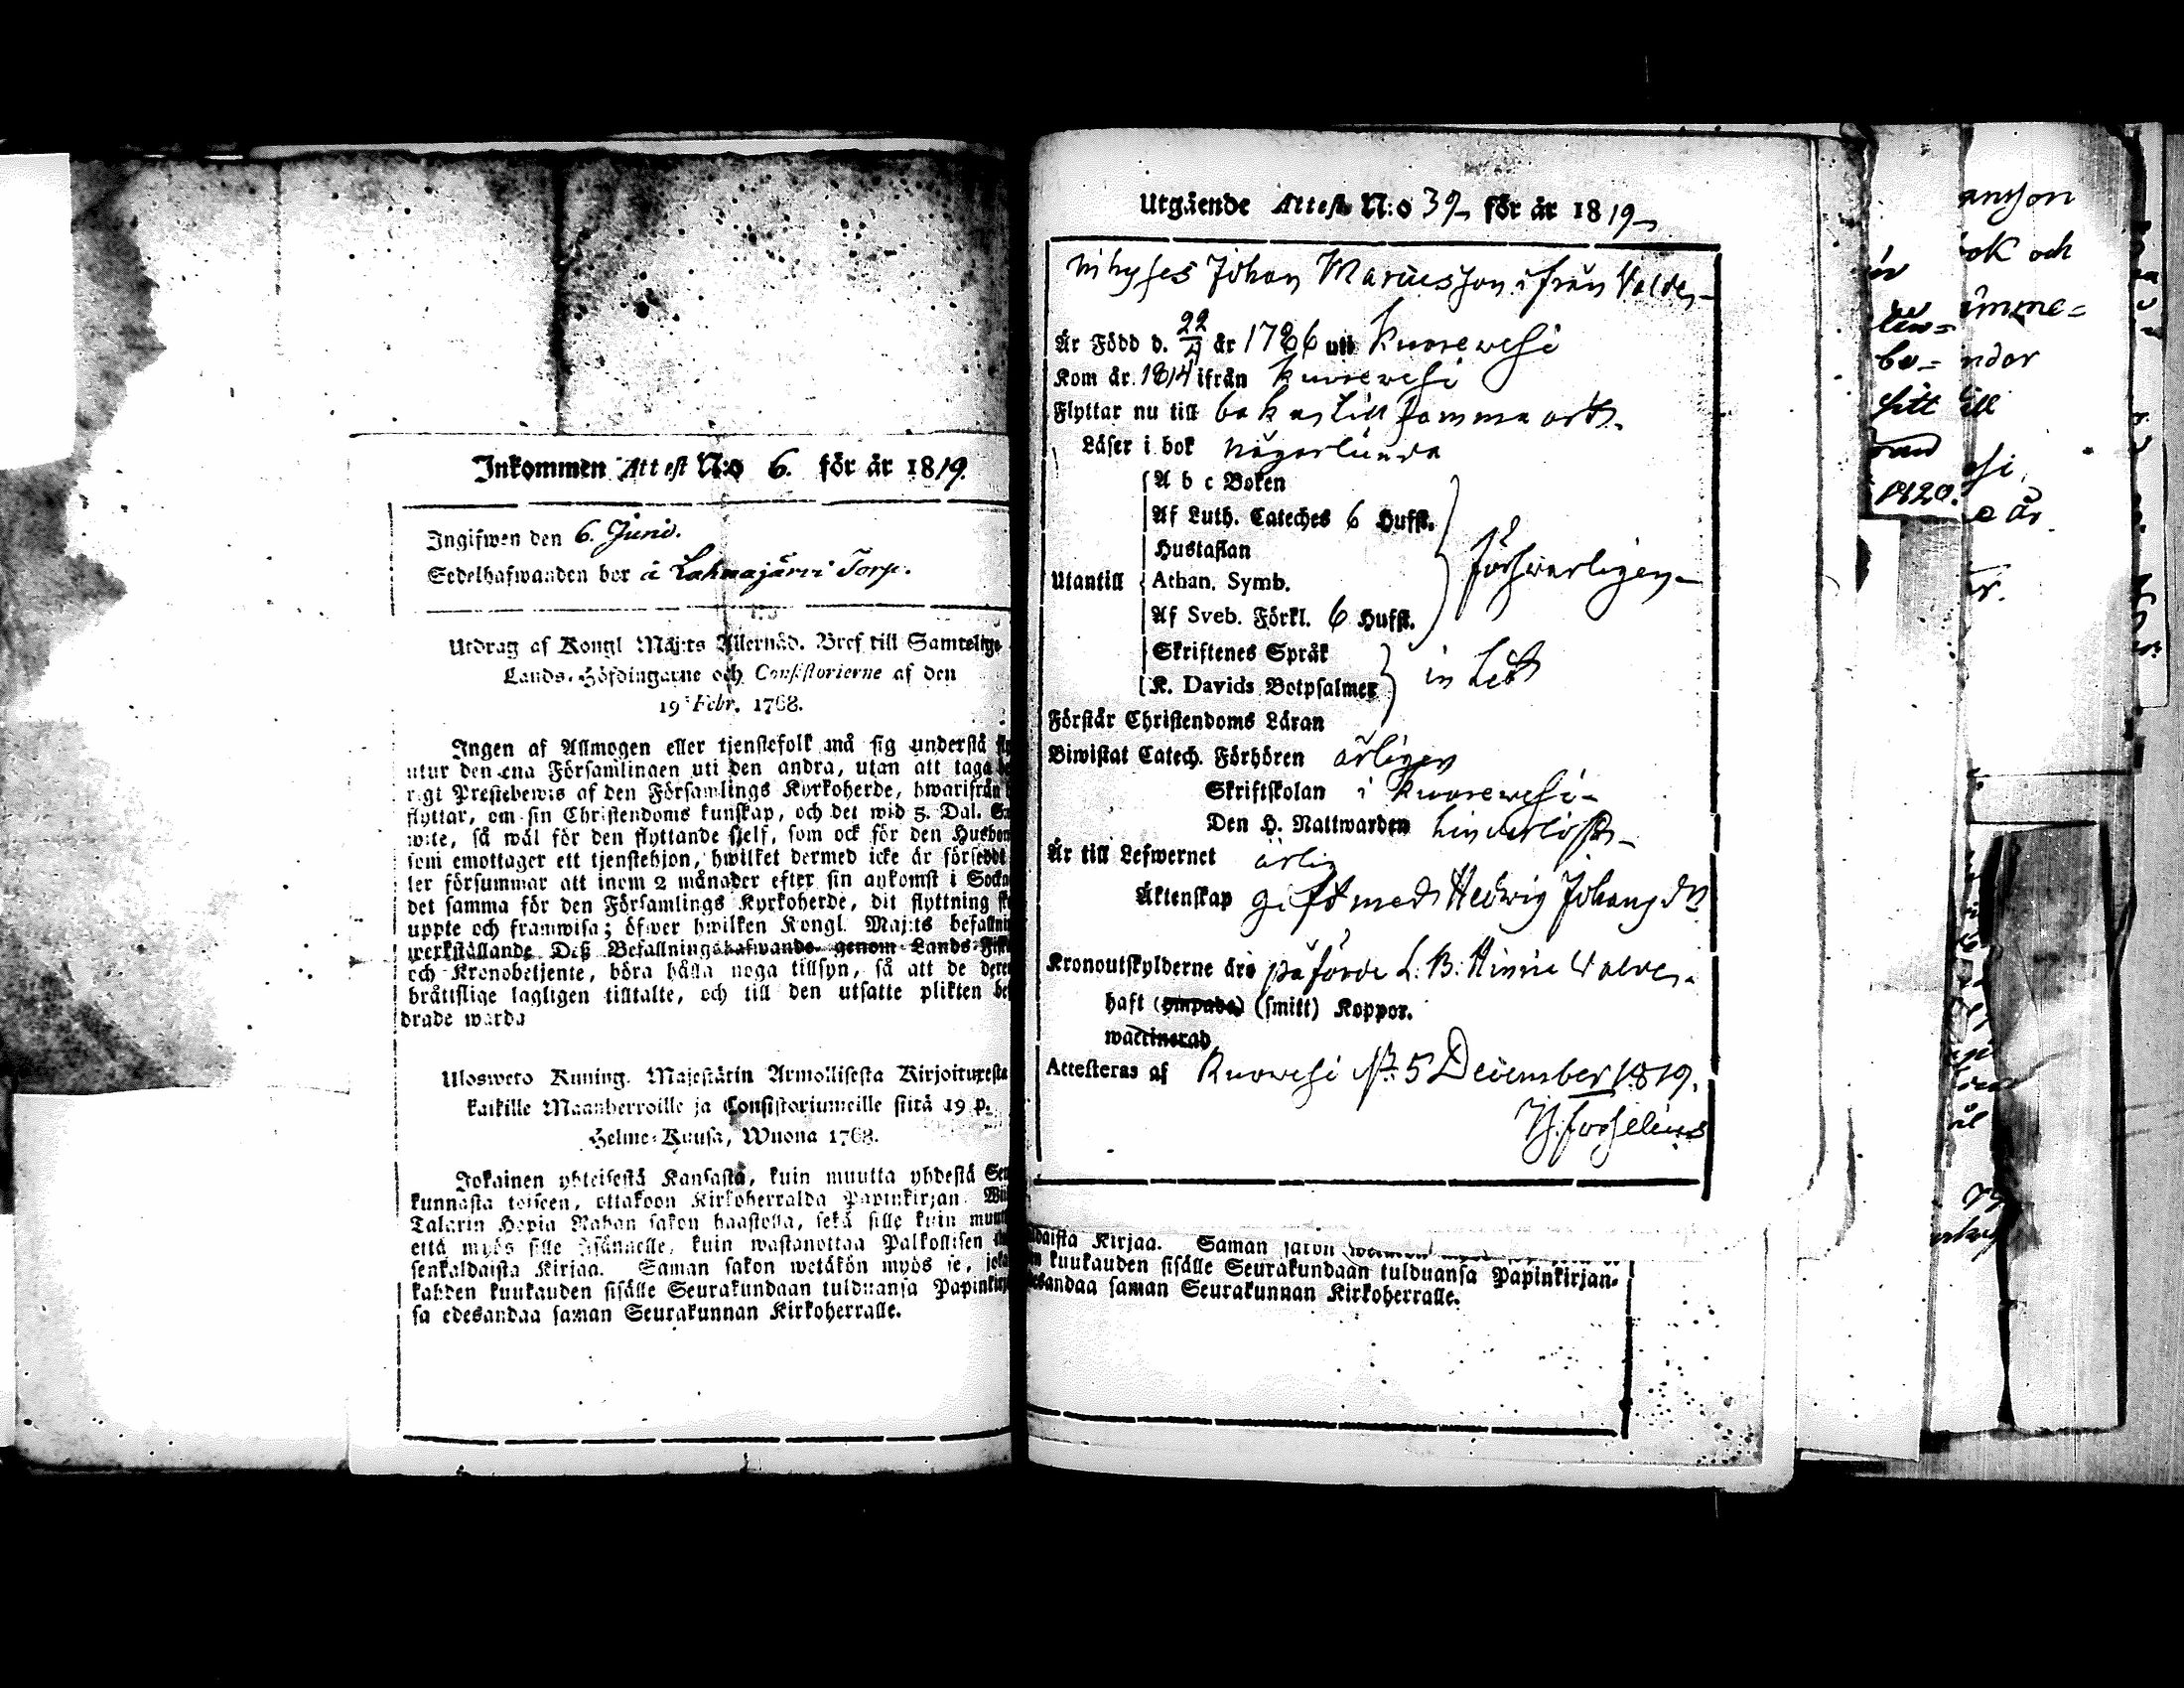 Inkommen Attest N:o 6. för år 1819.
Ingifwen den 6. Juni.
Sedelhafwanden bor å Lahnajärvi Torp.
Utdrag af Kongl Maj:ts Allernåd. Bref till Samtelige
Lands-Höfdingarne och Consistorierne af den
19 Febr. 1768.
Ingen af Allmogen eller tjenstefolk må sig understå
utur den ena Församlingen uti den andra, utan att taga
Prestebewis af den Församlings Kyrkoherde, hwarifrån
flyttar, om sin Christendoms kunskap, och det wid 5. Dal.
wite, så wäl för den flyttande sjelf, som ock för den
som emottager ett tjenstehjon, hwilket dermed icke är försedt
ler försummar att inom 2 månader efter sin ankomst i
det samma för den Församlings Kyrkoherde, dit flyttning
uppte och framwisa; öfwer hwilken Kongl. Maj:ts
werkställande Deß Befallningshafwande genom Lands-
och Kronobetjente, böra hålla noga tillsyn, så att de
bråttslige lagligen tilltalte, och till den utsatte plikten
drade warda
Ulosweto Kuning. Majestätin Armollisesta Kirjoituxesta
kaikille Maanherroille ja Consistoriumeille siitä 19 p.
Helme-Kuusa, Wuona 1768.
Jokainen yhteisestä Kansasta, kuin muutta yhdestä
kunnasta toiseen, ottakoon Kirkoherralda Papinkirjan.
Talarin Hopia Rahan sakon haastolla, sekä sille kuin
että myös sille Isännelle, kuin wastanottaa Palkollisen
senkaldaista Kirjaa. Saman sakon wetäkön myös se,
kahden kuukauden sisälle Seurakundaan tulduansa
sa edesandaa saman Seurakunnan Kirkoherralle.
Utgående Attest N:o 39 för år 1819
Johan Mariüsson ifrån
År Född d. 22/4 år 1786 uti Kuorewesi
Kom år 1814 ifrån Kuorewesi
Flyttar nu till bakas till samma ort.
Läser i bok någorlunda
A b c Boken
Af Luth. Cateches 6 Hufst.
Hustaflan
Utantill Athan. Symb. försvarligen
Af Sveb. Förkl. 6 Hufst.
Skriftenes Språk
K. Davids Botpsalmer
Förstår Christendoms Läran
Biwistat Catech. Förhören årligen
Skriftskolan i Kuorewesi
Den H. Nattwarden hinderlöst
Är till Lefwernet ärlig
Äktenskap gift med Hedwig Johansdr
Kronoutskylderne äro påförde
haft (ympade) (smitt) Koppor.
waccinerad
Attesteras af Ruowesi 5 December 1819.
kuukauden sisälle Seurakundaan tulduansa Papinkirjan-
saman Seurakunnan Kirkoherralle.
1820.
ok och